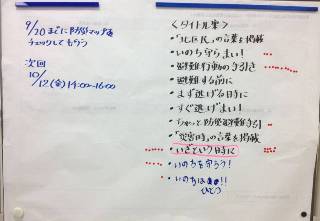 9/20までに防災マップを
チェックしてもらう
次回
10/12(金)14:00~16:00
<タイトル案>
・「北区民」の言葉を掲載
・いのち守らまい!
・避難行動の手引き
・避難する前に
・まず逃げる時に
・すぐ逃げまい!
・ちゃっと防災避難手引
・「災害時」の言葉を掲載
・いざという時に
・いのちを守ろう!
・いのちは
ひとつ